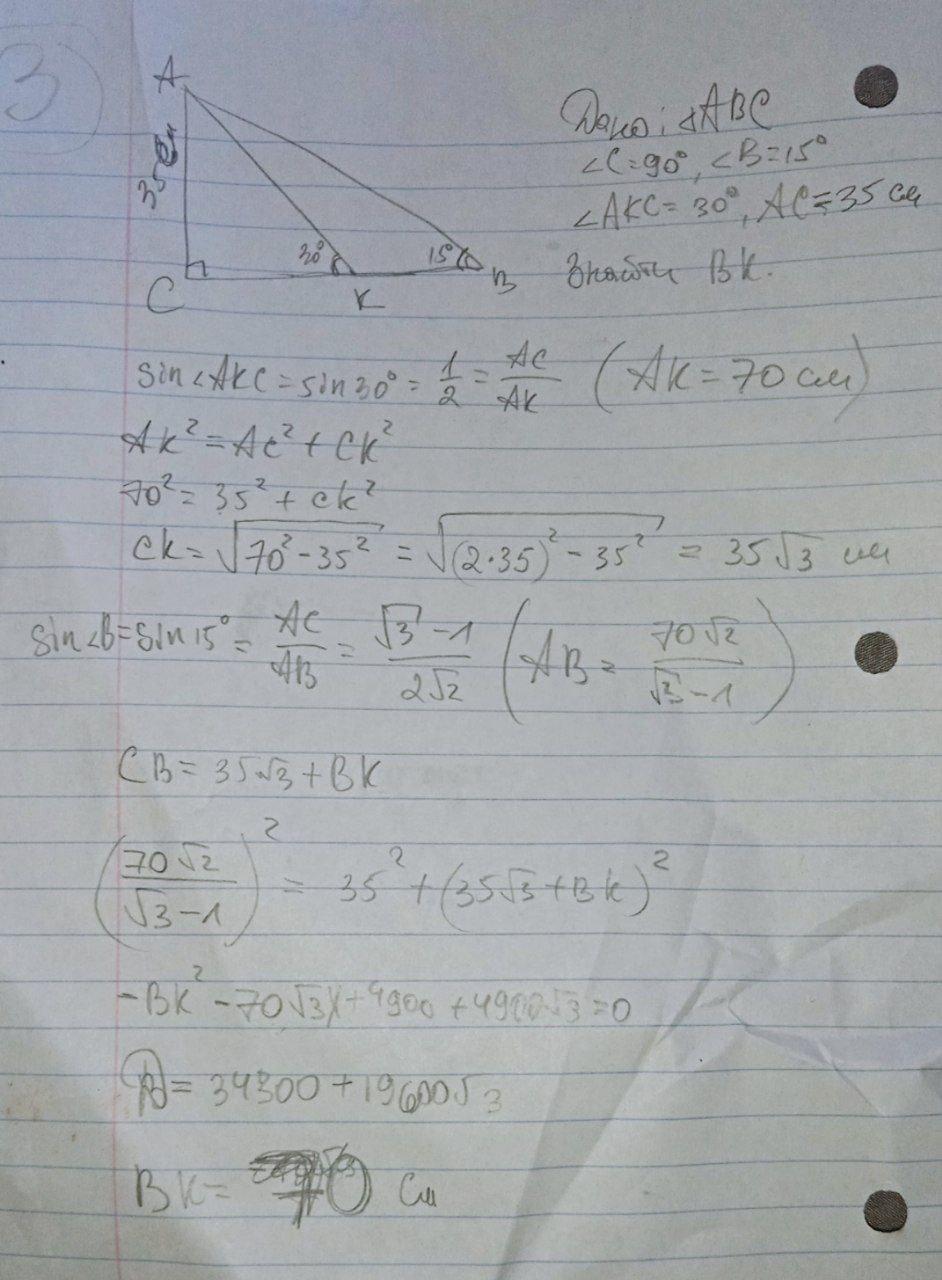 3)
A
35 см
30°
15°
C
K
B
Дано: ΔABC
∠C=90°, ∠B=15°
∠AKC=30°, AC=35 см
Знайти BK.
sin∠AKC = sin30° = 1/2 = AC/AK (AK=70 см)
AK² = AC² + CK²
70² = 35² + CK²
CK = √(70²-35²) = √((2·35)²-35²) = 35√3 см
sin∠B = sin15° = AC/AB = (√3-1)/(2√2) (AB = 70√2/(√3-1))
CB = 35√3 + BK
(70√2/(√3-1))² = 35² + (35√3+BK)²
-BK² - 70√3x + 4900 + 4900√3 = 0
D = 34300 + 19600√3
BK = 70 см